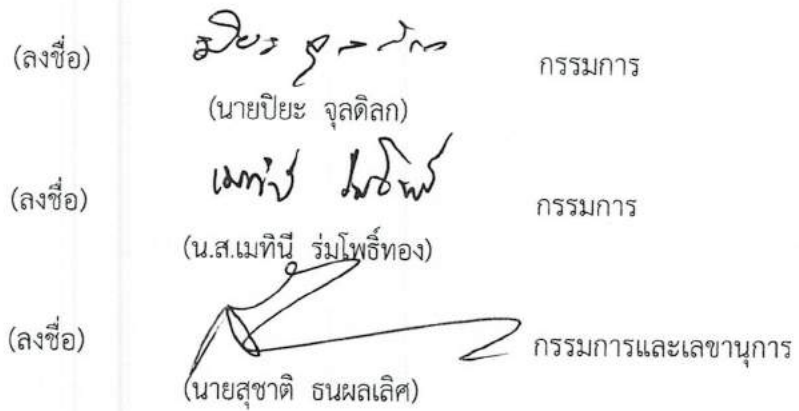 (ลงชื่อ) กรรมการ
(นายปิยะ จุลดิลก)
(ลงชื่อ) เมทินี ร่มโพธิ์ กรรมการ
(น.ส.เมทินี ร่มโพธิ์ทอง)
(ลงชื่อ) กรรมการและเลขานุการ
(นายสุชาติ ธนผลเลิศ)